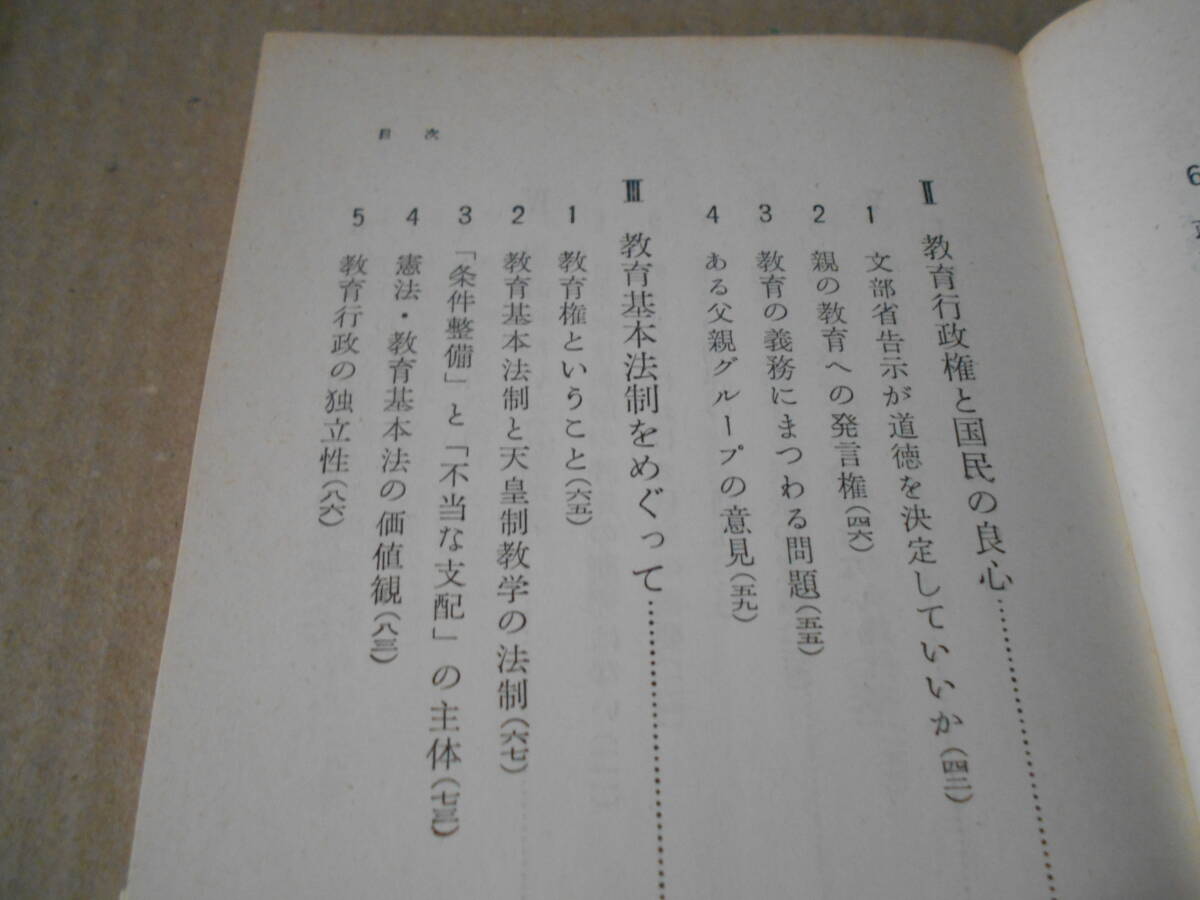 目次
Ⅱ 教育行政権と国民の良心……………
1 文部省告示が道徳を決定していいか(四二)
2 親の教育への発言権(四六)
3 教育の義務にまつわる問題(五五)
4 ある父親グループの意見(五九)
Ⅲ 教育基本法制をめぐって……………
1 教育権ということ(六五)
2 教育基本法制と天皇制教学の法制(六七)
3 「条件整備」と「不当な支配」の主体(七三)
4 憲法・教育基本法の価値観(八三)
5 教育行政の独立性(八六)
6